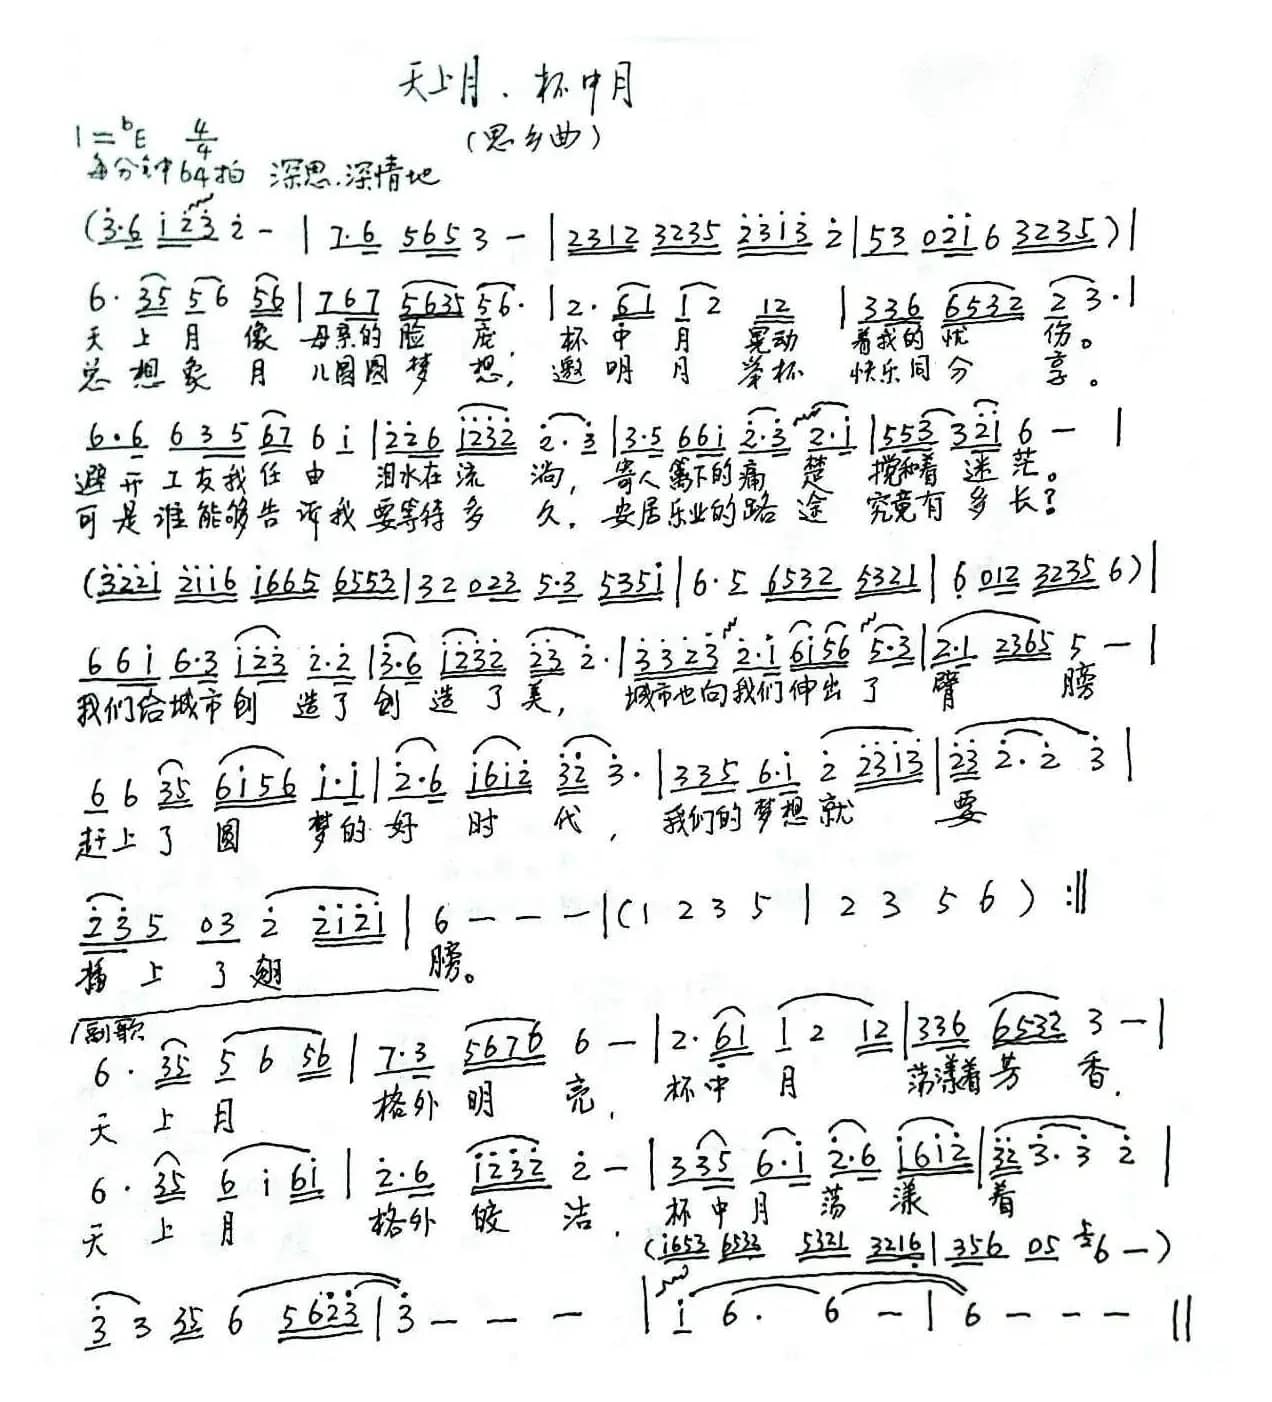 天上月、杯中月
(思乡曲)
1=bE 4/4
每分钟64拍 深思.深情地
(3·6 i23 2 - | 7·6 565 3 - | 2312 3235 2313 2 | 53 021 6 3235) |
6· 35 56 56 | 767 5635 56· | 2· 61 12 12 | 336 6532 23· |
天上月像母亲的脸庞,杯中月晃动着我的忧伤。
总想象月儿圆圆梦想,邀明月举杯快乐同分享。
6·6 635 67 6 i | 226 i232 2·3 | 3·5 66i 2·3 2·i | 553 32i 6 - |
避开工友我任由泪水在流淌,寄人篱下的痛楚搅和着迷茫。
可是谁能够告诉我要等待多久,安居乐业的路途究竟有多长?
(322i 2ii6 i665 6553 | 32 023 5·3 535i | 6·5 6532 5321 | 6 012 3235 6) |
66i 6·3 i23 2·2 | 3·6 i232 23 2· | 3323 2·i 6i56 5·3 | 2·1 2365 5 - |
我们给城市创造了创造了美,城市也向我们伸出了臂膀
6 6 35 6i56 i·i | 2·6 i6i2 32 3· | 335 6·i 2 23i3 | 23 2·2 3 |
赶上了圆梦的好时代,我们的梦想就要
235 03 2 2i2i | 6 - - - | (1 2 3 5 | 2 3 5 6) :‖
插上了翅膀。
副歌
6· 35 5 6 56 | 7·3 5676 6 - | 2· 61 1 2 12 | 336 6532 3 - |
天上月格外明亮,杯中月荡漾着芳香,
6· 35 6 i 6i | 2·6 i232 2 - | 335 6·i 2·6 i6i2 | 32 3·3 2 |
天上月格外皎洁,杯中月荡漾着
(i653 6532 5321 3216 | 356 05 56 -)
3 3 35 6 5623 | 3 - - - | i 6· 6 - | 6 - - - ‖